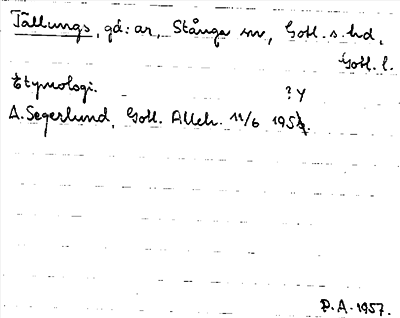 Tällungs, gd: ar, Stånga sn, Gotl. s. hd,
Gotl. l.
Etymologi.
? 4
A. Segerlund, Gotl. Alleh. 11/6 195
D.A. 1957.